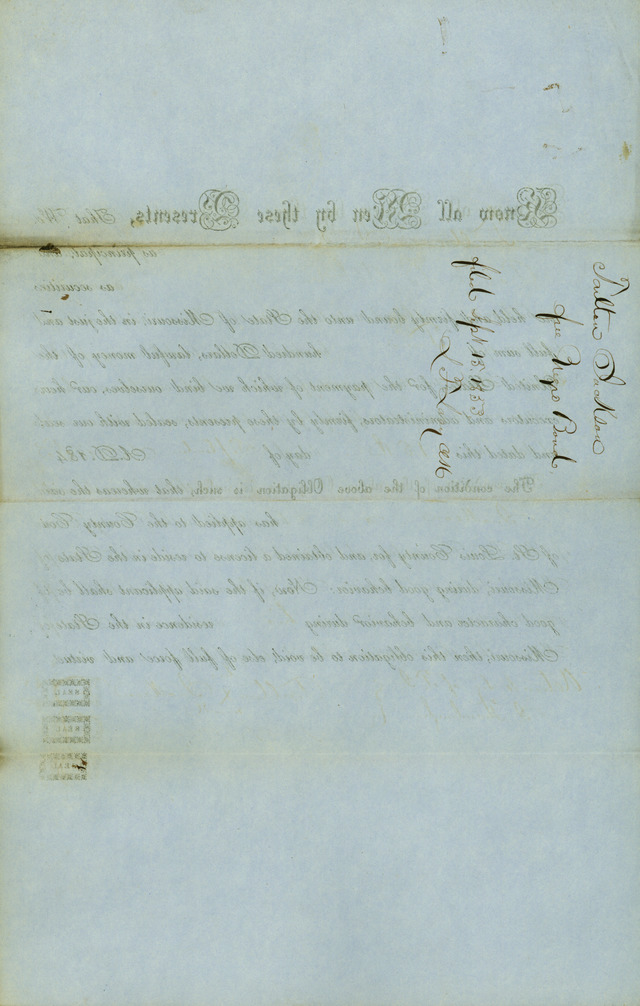 Jackson
free Negro Bond
filed Sept. 13. 1853
Know all Men by these Presents, That We
as principal,
as securities
held and firmly bound unto the State of Missouri, in the just and
full sum hundred Dollars, lawful money of the
United States, for the payment of which we bind ourselves, our heirs
executors and administrators, firmly by these presents, sealed with our seal
and dated this day of A.D. 184
The condition of the above Obligation is such, that whereas the
has applied to the County Cou
of St. Louis County for, and obtained a license to reside in the State of
Missouri, during good behavior: Now, if the said applicant shall be of
good character and behavior during residence in the State of
Missouri, then this obligation to be void, else of full force and virtue
SEAL
SEAL
SEAL